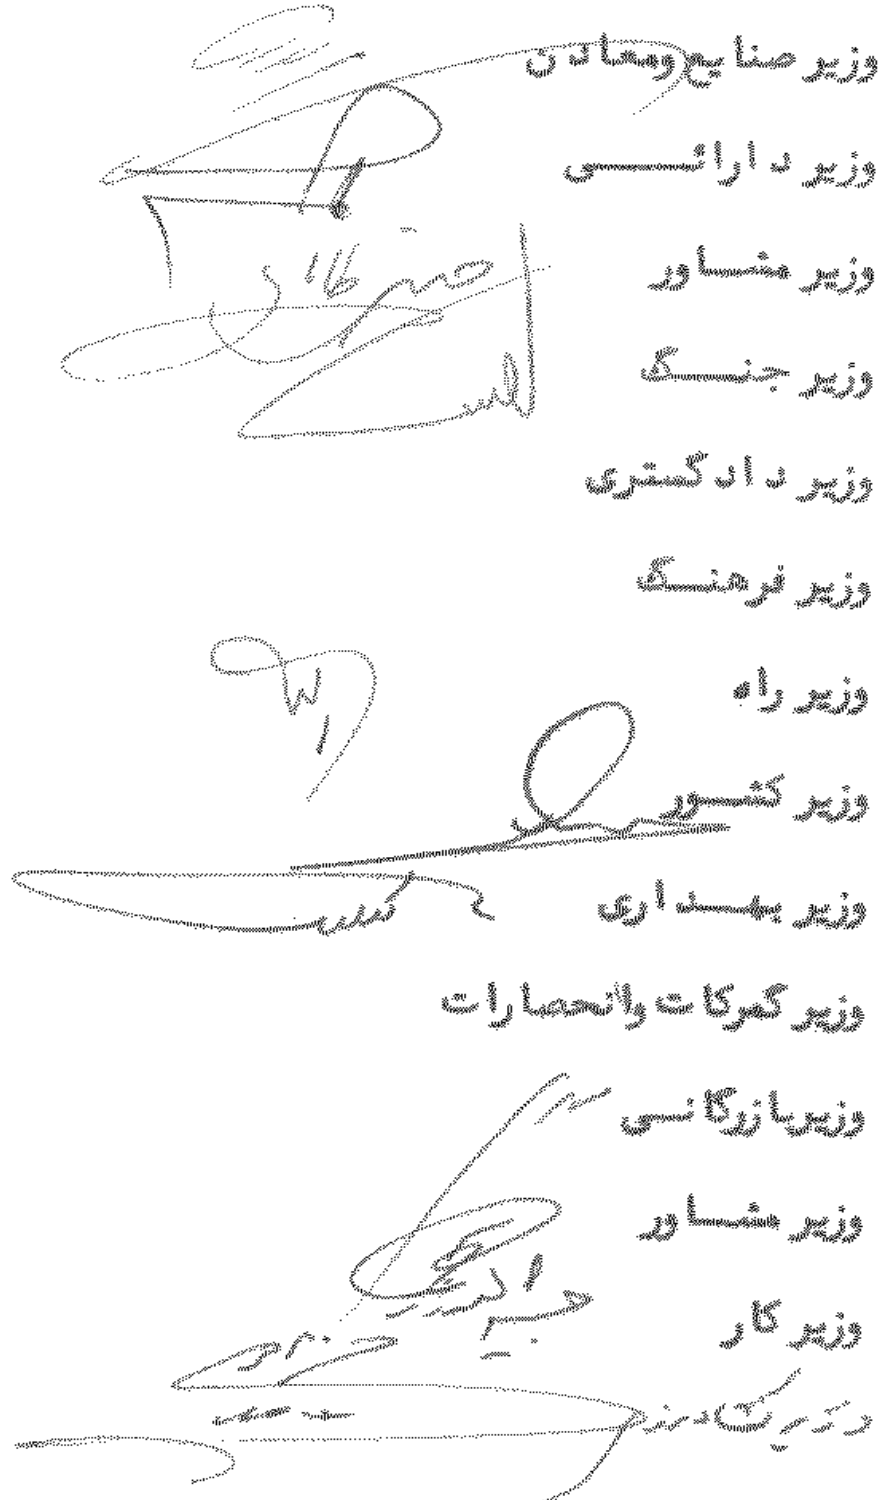 وزیر صنایع ومعادن
وزیر دارائی
وزیر مشاور
وزیر جنگ
وزیر دادگستری
وزیر فرهنگ
وزیر راه
وزیر کشور
وزیر بهداری
وزیر گمرکات وانحصارات
وزیر بازرگانی
وزیر مشاور
وزیر کار